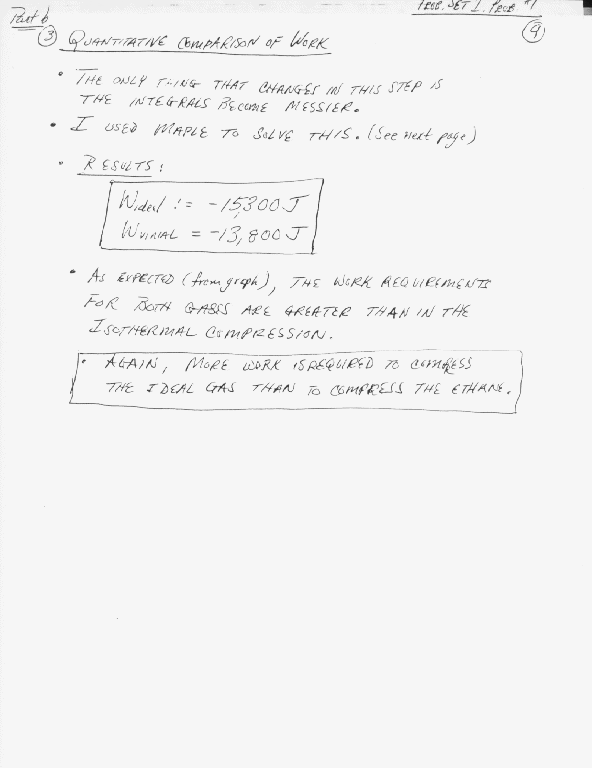 Part b
PROB. SET 1. PROB #1
(3) QUANTITATIVE COMPARISON OF WORK
• THE ONLY THING THAT CHANGES IN THIS STEP IS
THE INTEGRALS BECOME MESSIER.
• I USED MAPLE TO SOLVE THIS. (See next page)
• RESULTS:
Wideal := -15,300 J
WVIRIAL = -13,800 J
• AS EXPECTED (from graph), THE WORK REQUIREMENTS
FOR BOTH GASES ARE GREATER THAN IN THE
ISOTHERMAL COMPRESSION.
• AGAIN, MORE WORK IS REQUIRED TO COMPRESS
THE IDEAL GAS THAN TO COMPRESS THE ETHANE.